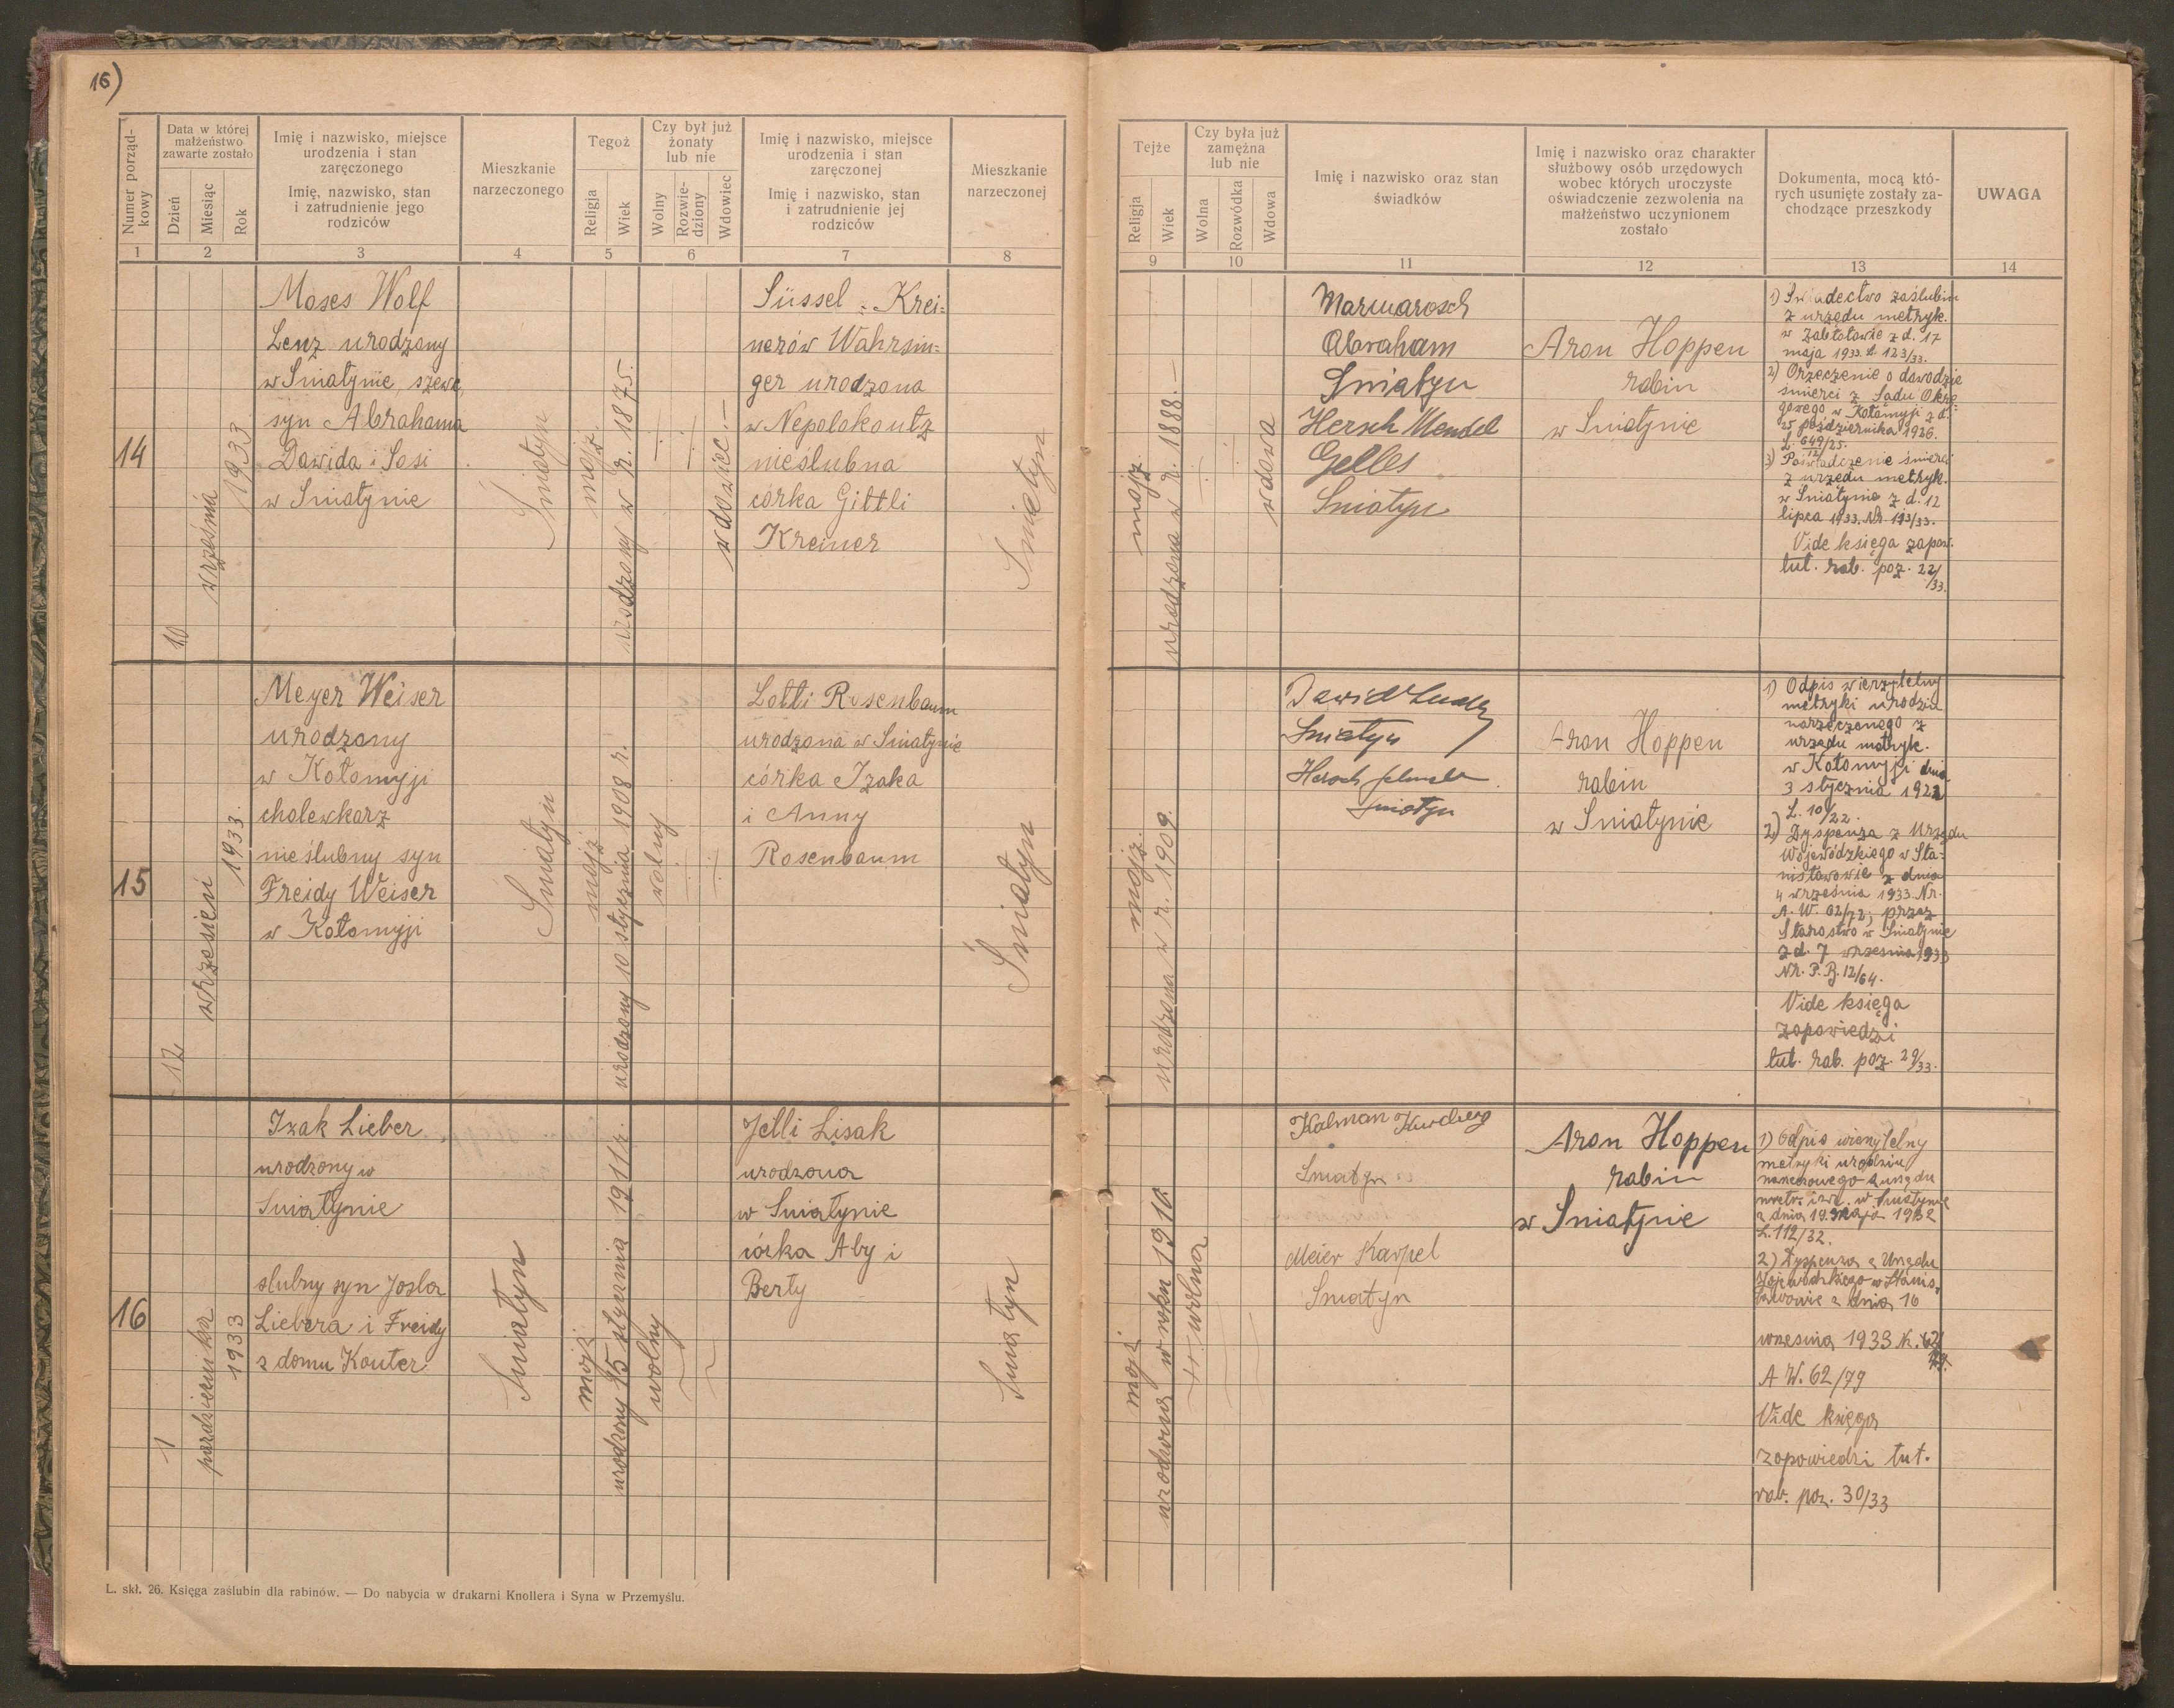 16)
Numer porząd-
kowy
Data w której
małżeństwo
zawarte zostało
Dzień
Miesiąc
Rok
Imię i nazwisko, miejsce
urodzenia i stan
zaręczonego
Imię, nazwisko, stan
i zatrudnienie jego
rodziców
Mieszkanie
narzeczonego
Tegoż
Religja
Wiek
Czy był już
żonaty
lub nie
Wolny
Rozwie-
dziony
Wdowiec
Imię i nazwisko, miejsce
urodzenia i stan
zaręczonej
Imię i nazwisko, stan
i zatrudnienie jej
rodziców
Mieszkanie
narzeczonej
1 2 3 4 5 6 7 8
Tejże
Religja
Wiek
Czy była już
zamężna
lub nie
Wolna
Rozwódka
Wdowa
Imię i nazwisko oraz stan
świadków
Imię i nazwisko oraz charakter
służbowy osób urzędowych
wobec których uroczyste
oświadczenie zezwolenia na
małżeństwo uczynionem
zostało
Dokumenta, mocą któ-
rych usunięte zostały za-
chodzące przeszkody
UWAGA
9 10 11 12 13 14
14
10
września
1933
Moses Wolf
Lenz urodzony
w Śniatynie, szewc,
syn Abrahama
Dawida i Sosi
w Śniatynie
Śniatyn
mojż.
urodzony w r. 1875.
wdowiec.—
Süssel : Krei=
nerów Wahrsin=
ger urodzona
w Nepolokoutz
nieślubna
córka Gittli
Kreiner
Śniatyn
mojż.
urodzona w r. 1888.—
wdowa
Marmarosch
Abraham
Śniatyn
Hersch Mendel
Gelles
Śniatyn
Aron Hoppen
rabin
w Śniatynie
1) Świadectwo zaślubin
z urzędu metryk.
w Zabłotowie z d. 17
maja 1933. L. 123/33.
2) Orzeczenie o dowodzie
śmierci z Sądu Okrę-
gowego w Kołomyji z d.
25 października 1926.
L. 649/25.
12
3) Poświadczenie śmierci
z urzędu metryk.
w Śniatynie z d. 12
lipca 1933. Nr. 193/33.
Vide księga zapow.
tut. rab. poz. 22/
/33.
15
12
wrzesień
1933.
Meyer Weiser
urodzony
w Kołomyji
cholewkarz
nieślubny syn
Freidy Weiser
w Kołomyji
Śniatyn
mojż.
urodzony 10 stycznia 1908 r.
wolny
Lotti Rosenbaum
urodzona w Śniatynie
córka Izaka
i Anny
Rosenbaum
Śniatyn
mojż.
urodzona w r. 1909.
Dawid
Śniatyn
Hersch
Śniatyn
Aron Hoppen
rabin
w Śniatynie
1) Odpis wierzytelny
metryki urodzin
narzeczonego z
urzędu metryk.
w Kołomyji dnia
3 stycznia 1922
L. 10/22.
2) Dyspenza z Urzędu
Wojewódzkiego w Sta=
nisławowie z dnia
4 września 1933. Nr.
A. W. 62/72; przez
Starostwo w Śniatynie
z d. 7 września 1933
Nr. P. B. 12/64.
Vide księga
zapowiedzi
tut. rab. poz. 29/33.
16
1
października
1933
Izak Lieber
urodzony w
Śniatynie
ślubny syn Josla
Liebera i Freidy
z domu Kauter
Śniatyn
mojż.
urodzony 15 stycznia 1911 r.
wolny
Jelli Lisak
urodzona
w Śniatynie
córka Aby i
Berty
Śniatyn
mojż
urodzona w roku 1910
wolna
Kalman
Śniatyn
Meier Karpel
Śniatyn
Aron Hoppen
rabin
w Śniatynie
1) Odpis wierzytelny
metryki urodzin
narzeczonego z urzędu
metr. izr. w Śniatynie
z dnia 19 maja 1932
L. 112/32.
2) Dyspenza z Urzędu
Wojewódzkiego w Stanis-
ławowie z dnia 16
września 1933 N. 62/
79.
A W. 62/79
Vide księga
zapowiedzi tut.
rab. poz. 30/33
L. skł. 26. Księga zaślubin dla rabinów. — Do nabycia w drukarni Knollera i Syna w Przemyślu.